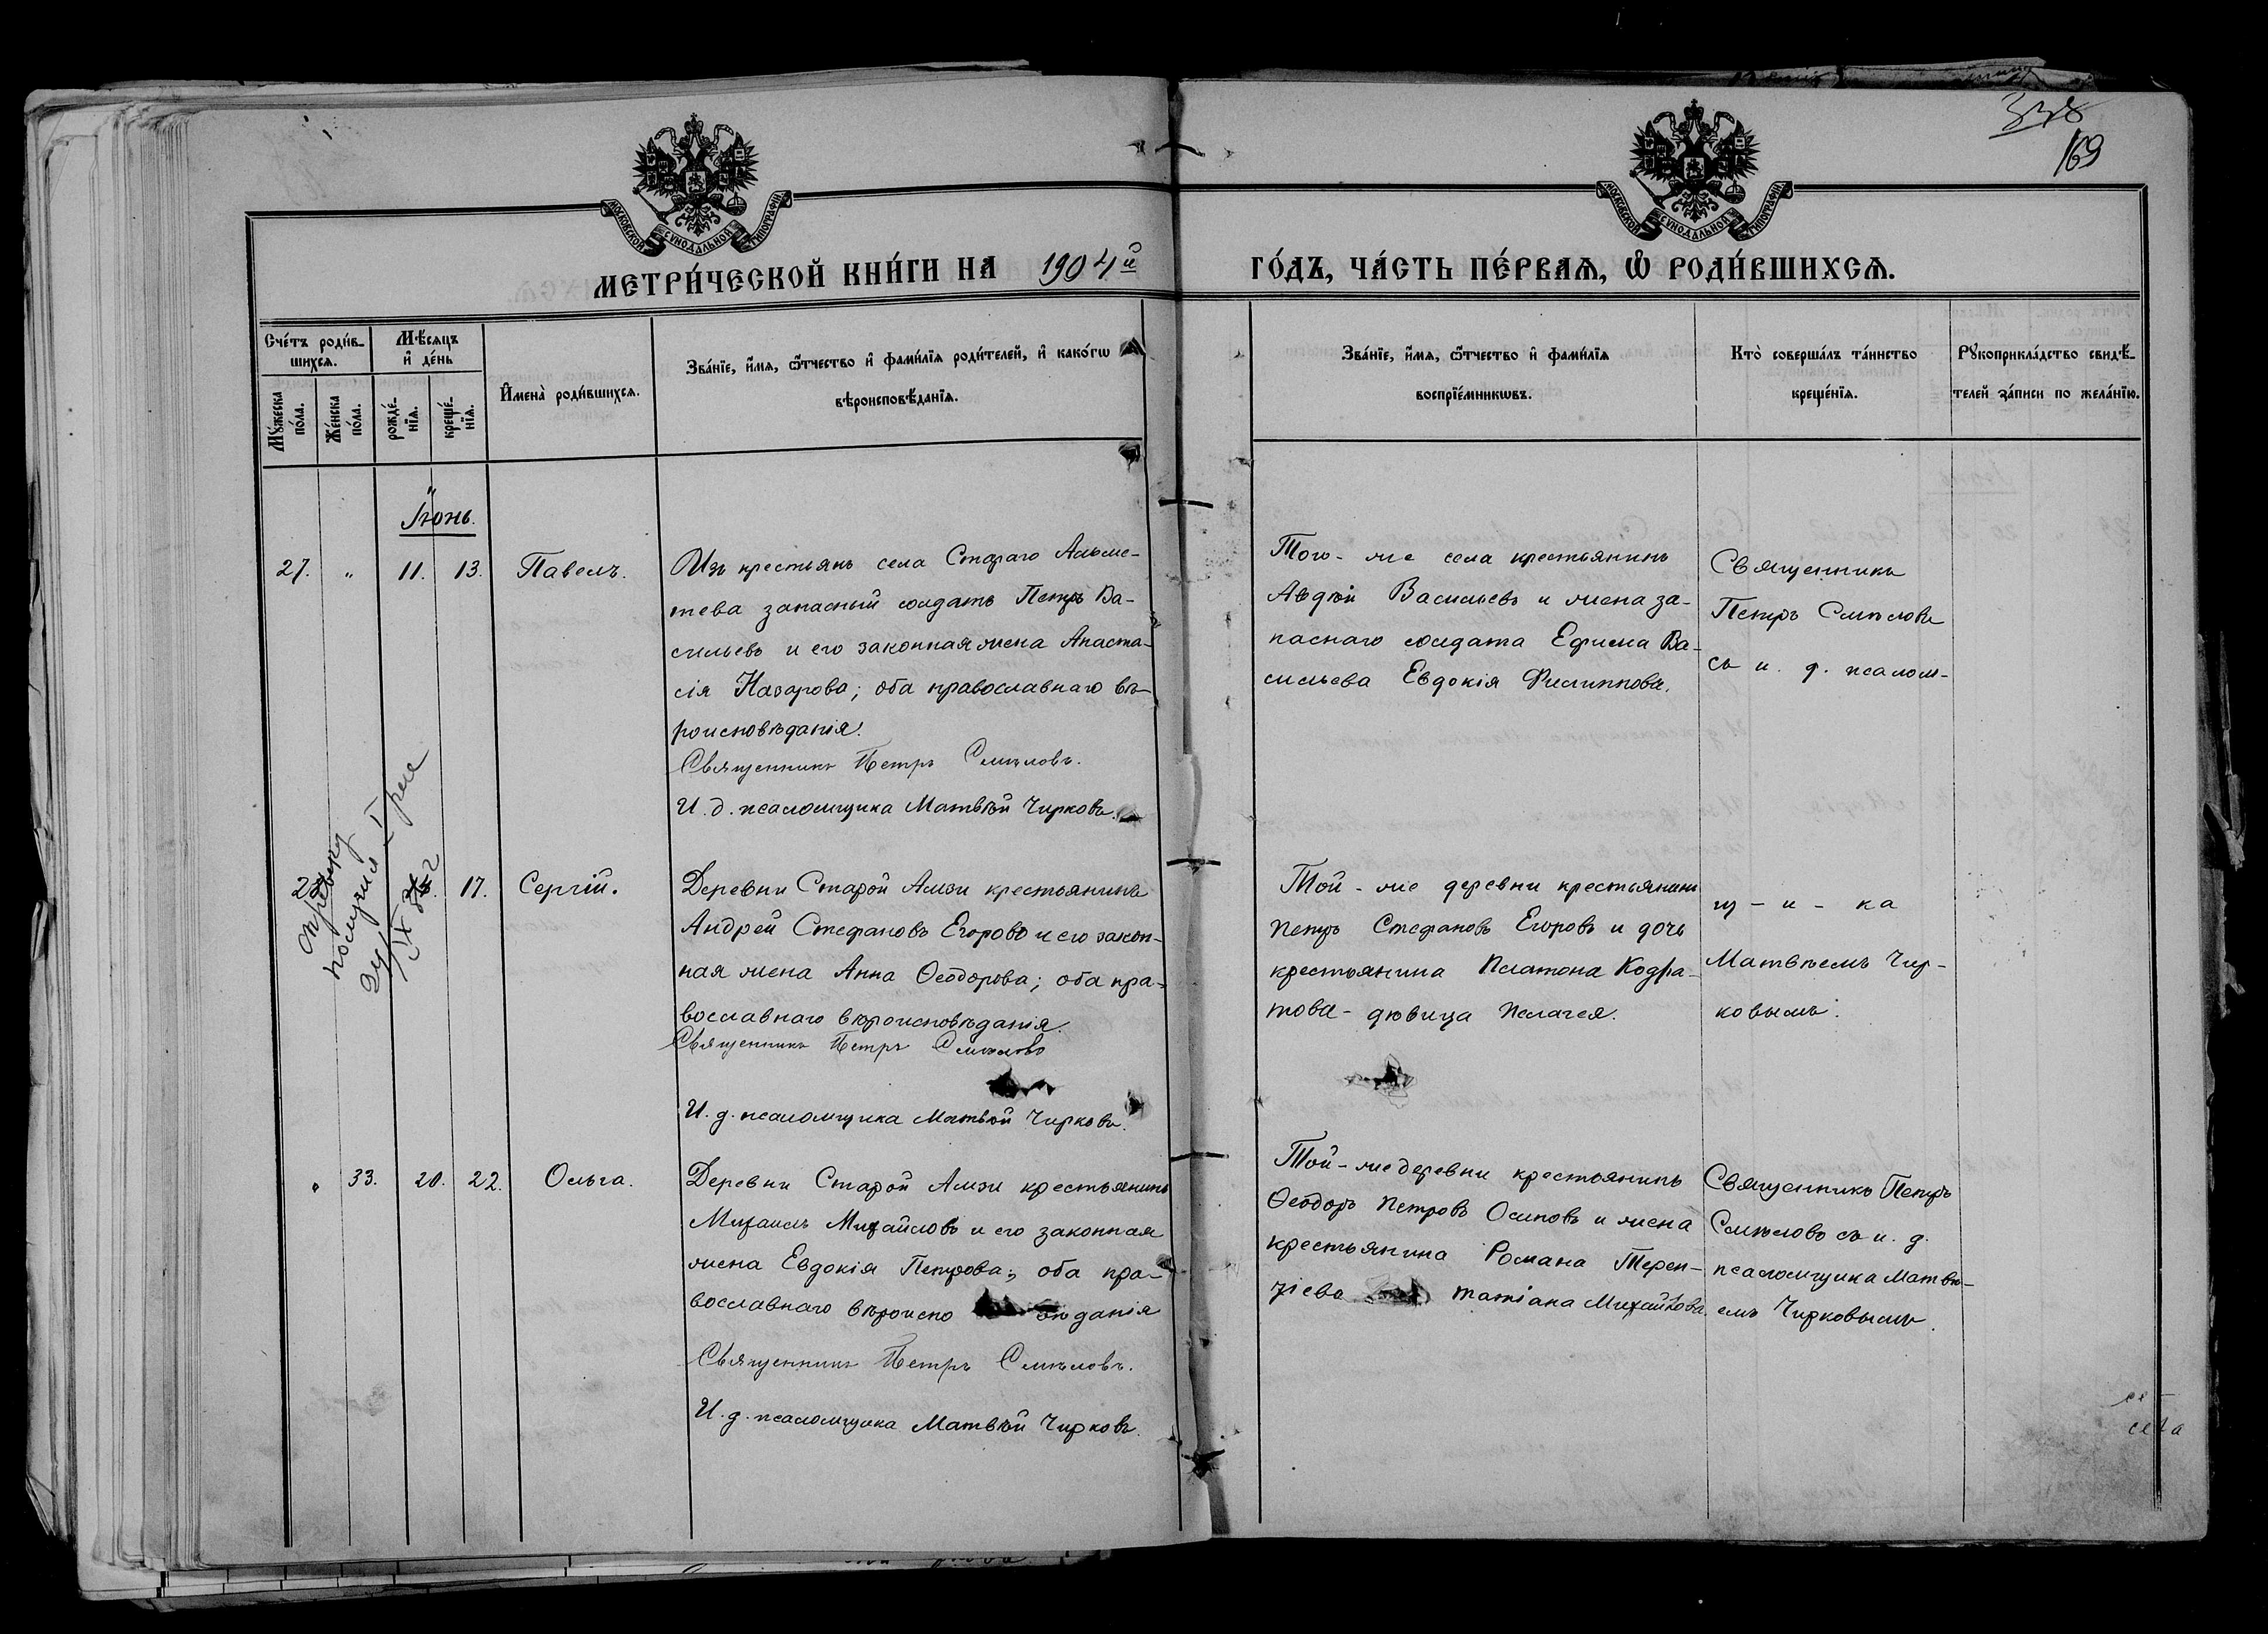 338
169
МОСКОВСКОЙ СѴНОДАЛЬНОЙ ТИПОГРАФІИ
МОСКОВСКОЙ СѴНОДАЛЬНОЙ ТИПОГРАФІИ
МЕТРИ́ЧЕСКОЙ КНИ́ГИ НА 1904й
ГО́ДЪ, ЧА́СТЬ ПЕ́РВАѦ, Ѡ҆ РОДИ́ВШИХСѦ.
Сче́тъ роди́в-
шихсѧ.
Мѣ́сѧцъ
и҆ де́нь
Мꙋ́жеска
по́ла.
Же́нска
по́ла.
рожде́-
нїѧ.
креще́-
нїѧ.
И҆мена̀ роди́вшихсѧ.
Зва́нїе, и҆́мѧ, ѻ҆́тчество и҆ фами́лїѧ роди́телей, и҆ како́гѡ
вѣроисповѣ́данїѧ.
Зва́нїе, и҆́мѧ, ѻ҆́тчество и҆ фами́лїѧ
воспрїе́мникѡвъ.
Кто̀ соверша́лъ та́инство
креще́нїѧ.
Рꙋкоприкла́дство свидѣ́-
телей за́писи по жела́нїю.
Іюнь.
27. " 11. 13. Павелъ.
Изъ крестьянъ села Стараго Альме-
тева запасный солдатъ Петръ Ва-
сильевъ и его законная жена Анаста-
сія Назарова; оба православнаго вѣ-
роисповѣданія.
Священникъ Петръ Смѣловъ.
И. д. псаломщика Матвѣй Чирковъ.
Того-же села крестьянинъ
Авдѣй Васильевъ и жена за-
паснаго солдата Ефима Ва-
сильева Евдокія Филиппова.
Священникъ
Петръ Смѣловъ
съ и. д. псалом-
справку
получил
17. Сергій.
Деревни Старой Амзи крестьянинъ
Андрей Стефановъ Егоровъ и его закон-
ная жена Анна Ѳеодорова; оба пра-
вославнаго вѣроисповѣданія.
Священникъ Петръ Смѣловъ
И. д. псаломщика Матвѣй Чирковъ.
Той-же деревни крестьянинъ
Петръ Стефановъ Егоровъ и дочь
крестьянина Платона Кодра-
това - дѣвица Пелагея.
щ-и-ка
Матвѣемъ Чир-
ковымъ.
" 33. 20. 22. Ольга.
Деревни Старой Амзи крестьянинъ
Михаилъ Михайловъ и его законная
жена Евдокія Петрова; оба пра-
вославнаго вѣроиспо вѣданія
Священникъ Петръ Смѣловъ.
И. д. псаломщика Матвѣй Чирковъ.
Той-же деревни крестьянинъ
Ѳеодоръ Петровъ Осиповъ и жена
крестьянина Романа Терен-
тіева Татіана Михайлова.
Священникъ Петръ
Смѣловъ съ и. д.
псаломщика Матвѣ-
емъ Чирковымъ.